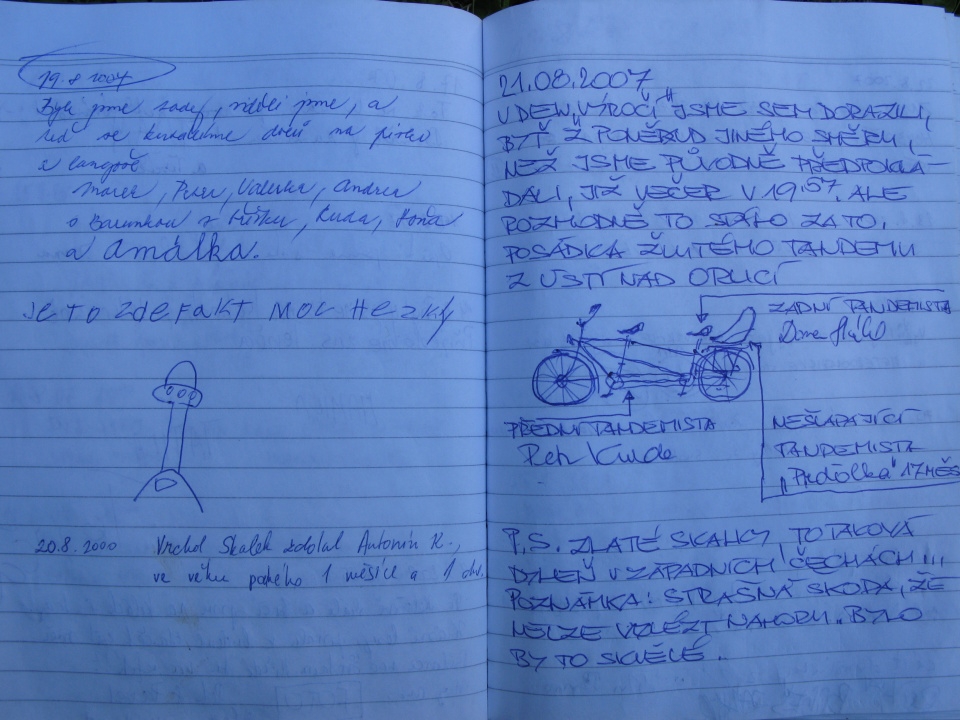 19.8 2007
Byli jme tady, viděli jme, a
teď se kutálíme dolů na pivko
a langoše
Marek, Petra, Valerka, Andrea
a Barunkou z Kuda, Hona
a Amálka.
JE TO zde FAKT MOC HEZKÝ
20.8.2000 Vrchol Skalek zdolal Antonín K.,
ve věku pouhého 1 měsíce a 1 dne.
21.08.2007
V DEN „VÝROČÍ" JSME SEM DORAZILI,
BYŤ Z PONĚKUD JINÉHO SMĚRU,
NEŽ JSME PŮVODNĚ PŘEDPOKLÁ-
DALI, JIŽ VEČER V 19.57. ALE
ROZHODNĚ TO STÁLO ZA TO.
POSÁDKA ŽLUTÉHO TANDEMU
Z ÚSTÍ NAD ORLICÍ
ZADNÍ TANDEMISTA
PŘEDNÍ TANDEMISTA
Petr
NEŠLAPAJÍCÍ
TANDEMISTA
„Prďolka" 17 MĚS
P.S. ZLATÉ SKALKY, TO TAKOVÁ
V ZÁPADNÍCH ČECHÁCH!!!
POZNÁMKA: STRAŠNÁ ŠKODA, ŽE
NELZE VYLÉZT NAHORU. BYLO
BY TO SKVĚLÉ.